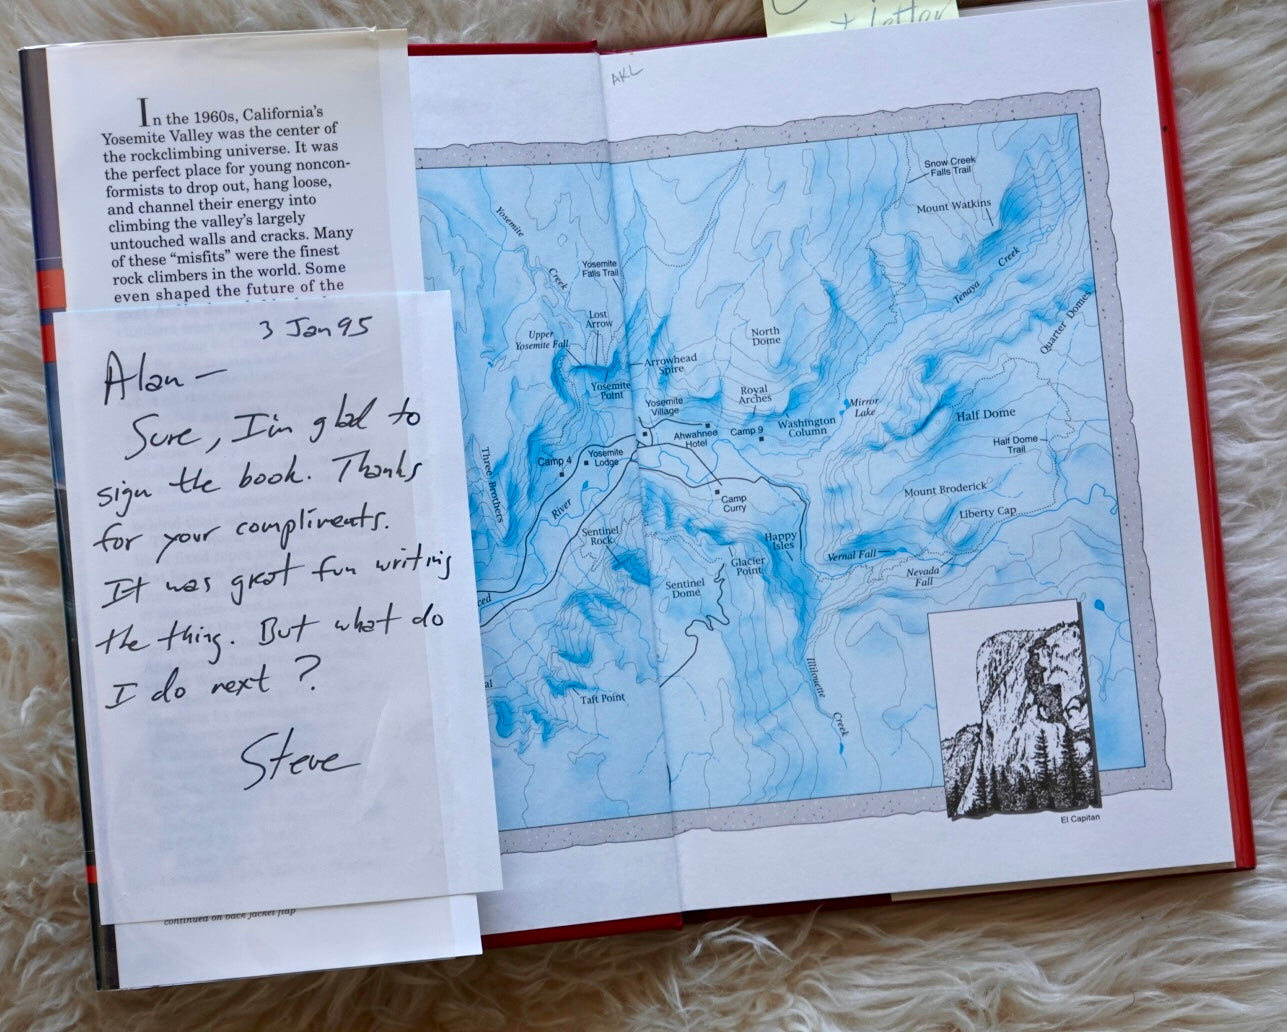 + letter
AKL
In the 1960s, California's
Yosemite Valley was the center of
the rockclimbing universe. It was
the perfect place for young noncon-
formists to drop out, hang loose,
and channel their energy into
climbing the valley's largely
untouched walls and cracks. Many
of these "misfits" were the finest
rock climbers in the world. Some
even shaped the future of the
3 Jan 95
Alan —
Sure, I'm glad to
sign the book. Thanks
for your compliments.
It was great fun writing
the thing. But what do
I do next?
Steve
continued on back jacket flap
Snow Creek
Falls Trail
Mount Watkins
Yosemite
Creek
Yosemite
Falls Trail
Creek
Tenaya
Quarter Domes
Lost
Arrow
Upper
Yosemite Fall
North
Dome
Arrowhead
Spire
Yosemite
Point
Royal
Arches
Mirror
Lake
Yosemite
Village
Half Dome
Washington
Column
Ahwahnee
Hotel
Camp 9
Half Dome
Trail
Three Brothers
Camp 4
Yosemite
Lodge
Mount Broderick
Camp
Curry
River
Liberty Cap
Sentinel
Rock
Happy
Isles
Vernal Fall
Glacier
Point
Nevada
Fall
Sentinel
Dome
ced
al
Taft Point
Illilouette
Creek
El Capitan